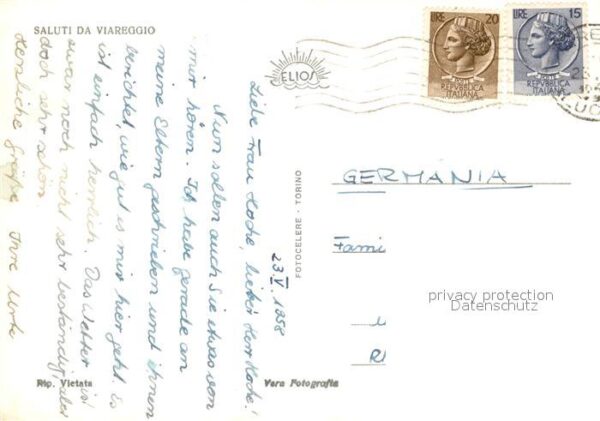 SALUTI DA VIAREGGIO
23.V.1958
Liebe Frau Koche, lieber Herr Koche!
Nun sollen auch Sie etwas von
mir hören. Ich habe gerade an
meine Eltern geschrieben und ihnen
berichtet, wie gut es mir hier geht. Es
ist einfach herrlich. Das Wetter ist
zwar noch nicht sehr beständig, aber
doch sehr schön.
Herzliche Grüße Ihre
Rip. Vietata
Vera Fotografia
ELIOS
FOTOCELERE - TORINO
LIRE 20
POSTE
REPVBBLICA
ITALIANA
LIRE 15
POSTE
REPVBBLICA
ITALIANA
GERMÀNIA
Fami
R
privacy protection
Datenschutz